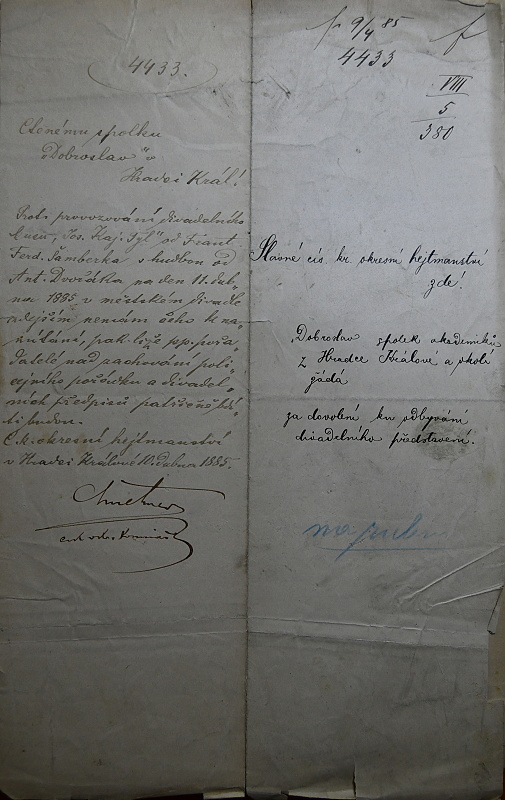 4433.
Ctěnému spolku
„Dobroslav“ v
Hradci Král.!
Proti provozování divadelního
kusu „Jos. Kaj. Tyl“ od Frant.
Ferd. Šamberka s hudbou od
Ant. Dvořáka na den 11. dub„
na 1885 v městském divadle
zdejším nemám čeho k na„
mítání, pak-liže pp. pořa„
datelé nad zachování poli„
cejního pořádku a divadel„
ních předpisů patřičně bdí„
ti budou.
C. k. okresní hejtmanství
v Hradci Králové 10. dubna 1885.
9/4 85
4433
VIII
5
380
Slavné cís. kr. okresní hejtmanství
zde!
„Dobroslav spolek akademiků
z Hradce Králové a okolí
žádá
za dovolení ku odbývání
divadelního představení.